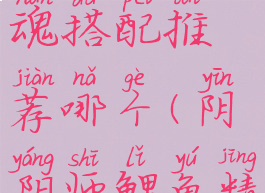 魂搭配推
jiàn nǎ gè yīn
荐哪个(阴
yáng shī lǐ yú jīng
阳师鲤鱼精